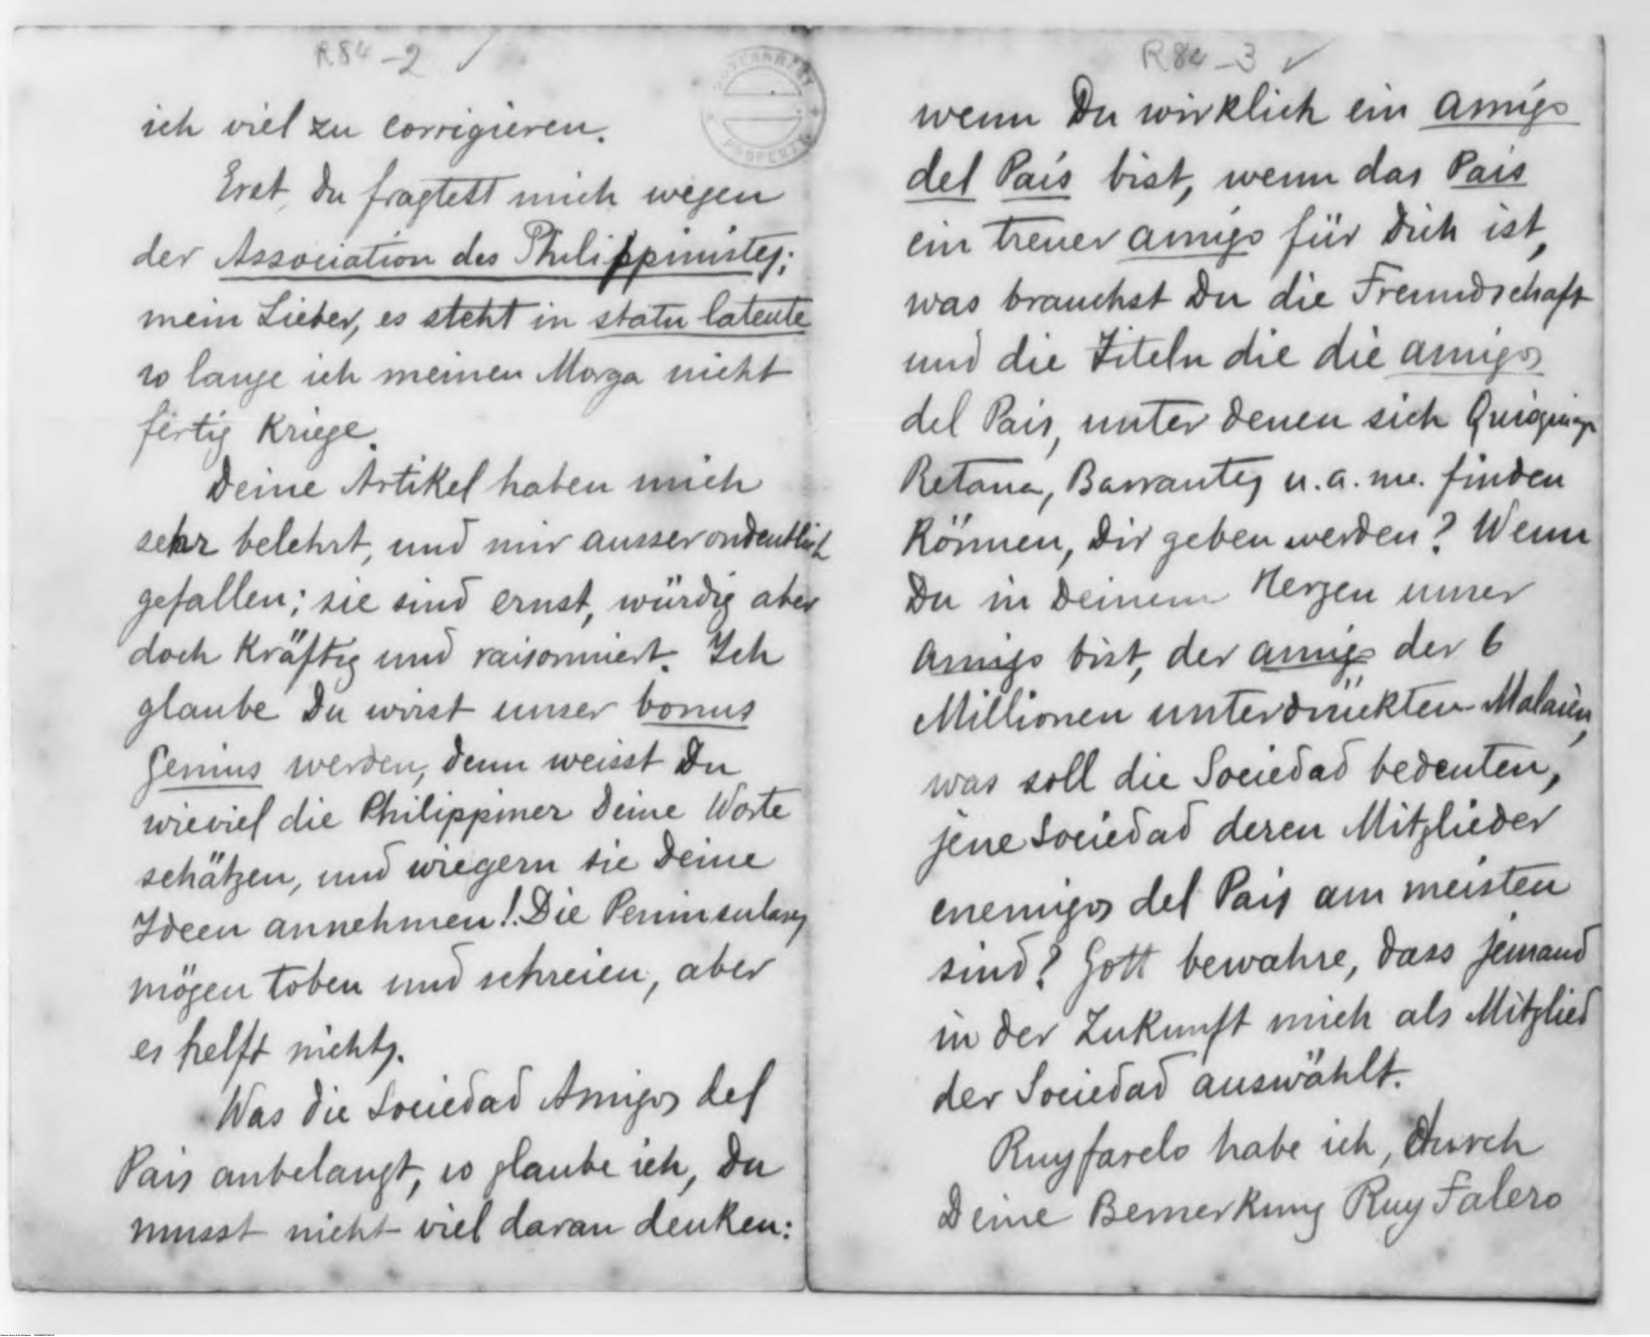 R84-2
GOVERNMENT PROPERTY
ich viel zu corrigieren.
Erst, Du fragtest mich wegen
der Association des Philippinistes;
mein Lieber, es steht in statu latente
so lange ich meinen Morga nicht
fertig kriege.
Deine Artikel haben mich
sehr belehrt, und mir ausserordentlich
gefallen; sie sind ernst, würdig aber
doch kräftig und raisonniert. Ich
glaube Du wirst unser bonus
Genius werden, denn weisst Du
wieviel die Philippiner Deine Worte
schätzen, und wiegern sie Deine
Ideen annehmen! Die Peninsulares
mögen toben und schreien, aber
es helft nichts.
Was die Sociedad Amigos del
Pais anbelangt, so glaube ich, Du
musst nicht viel daran denken:
R84-3
wenn Du wirklich ein amigo
del País bist, wenn das Pais
ein treuer amigo für Dich ist,
was brauchst Du die Freundschaft
und die Titeln die die amigos
del Pais, unter denen sich Quioquiap
Retana, Barrantes u. a. m. finden
können, Dir geben werden? Wenn
Du in Deinem Herzen unser
amigo bist, der amigo der 6
Millionen unterdrückten Malaien,
was soll die Sociedad bedeuten,
jene Sociedad deren Mitglieder
enemigos del Pais am meisten
sind? Gott bewahre, dass jemand
in der Zukunft mich als Mitglied
der Sociedad auswählt.
Ruyfarelo habe ich, durch
Deine Bemerkung Ruy Falero